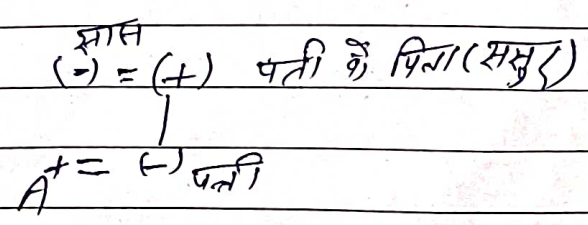 सास
(-) = (+) पत्नी के पिता (ससुर)
|
A+ = (-) पत्नी